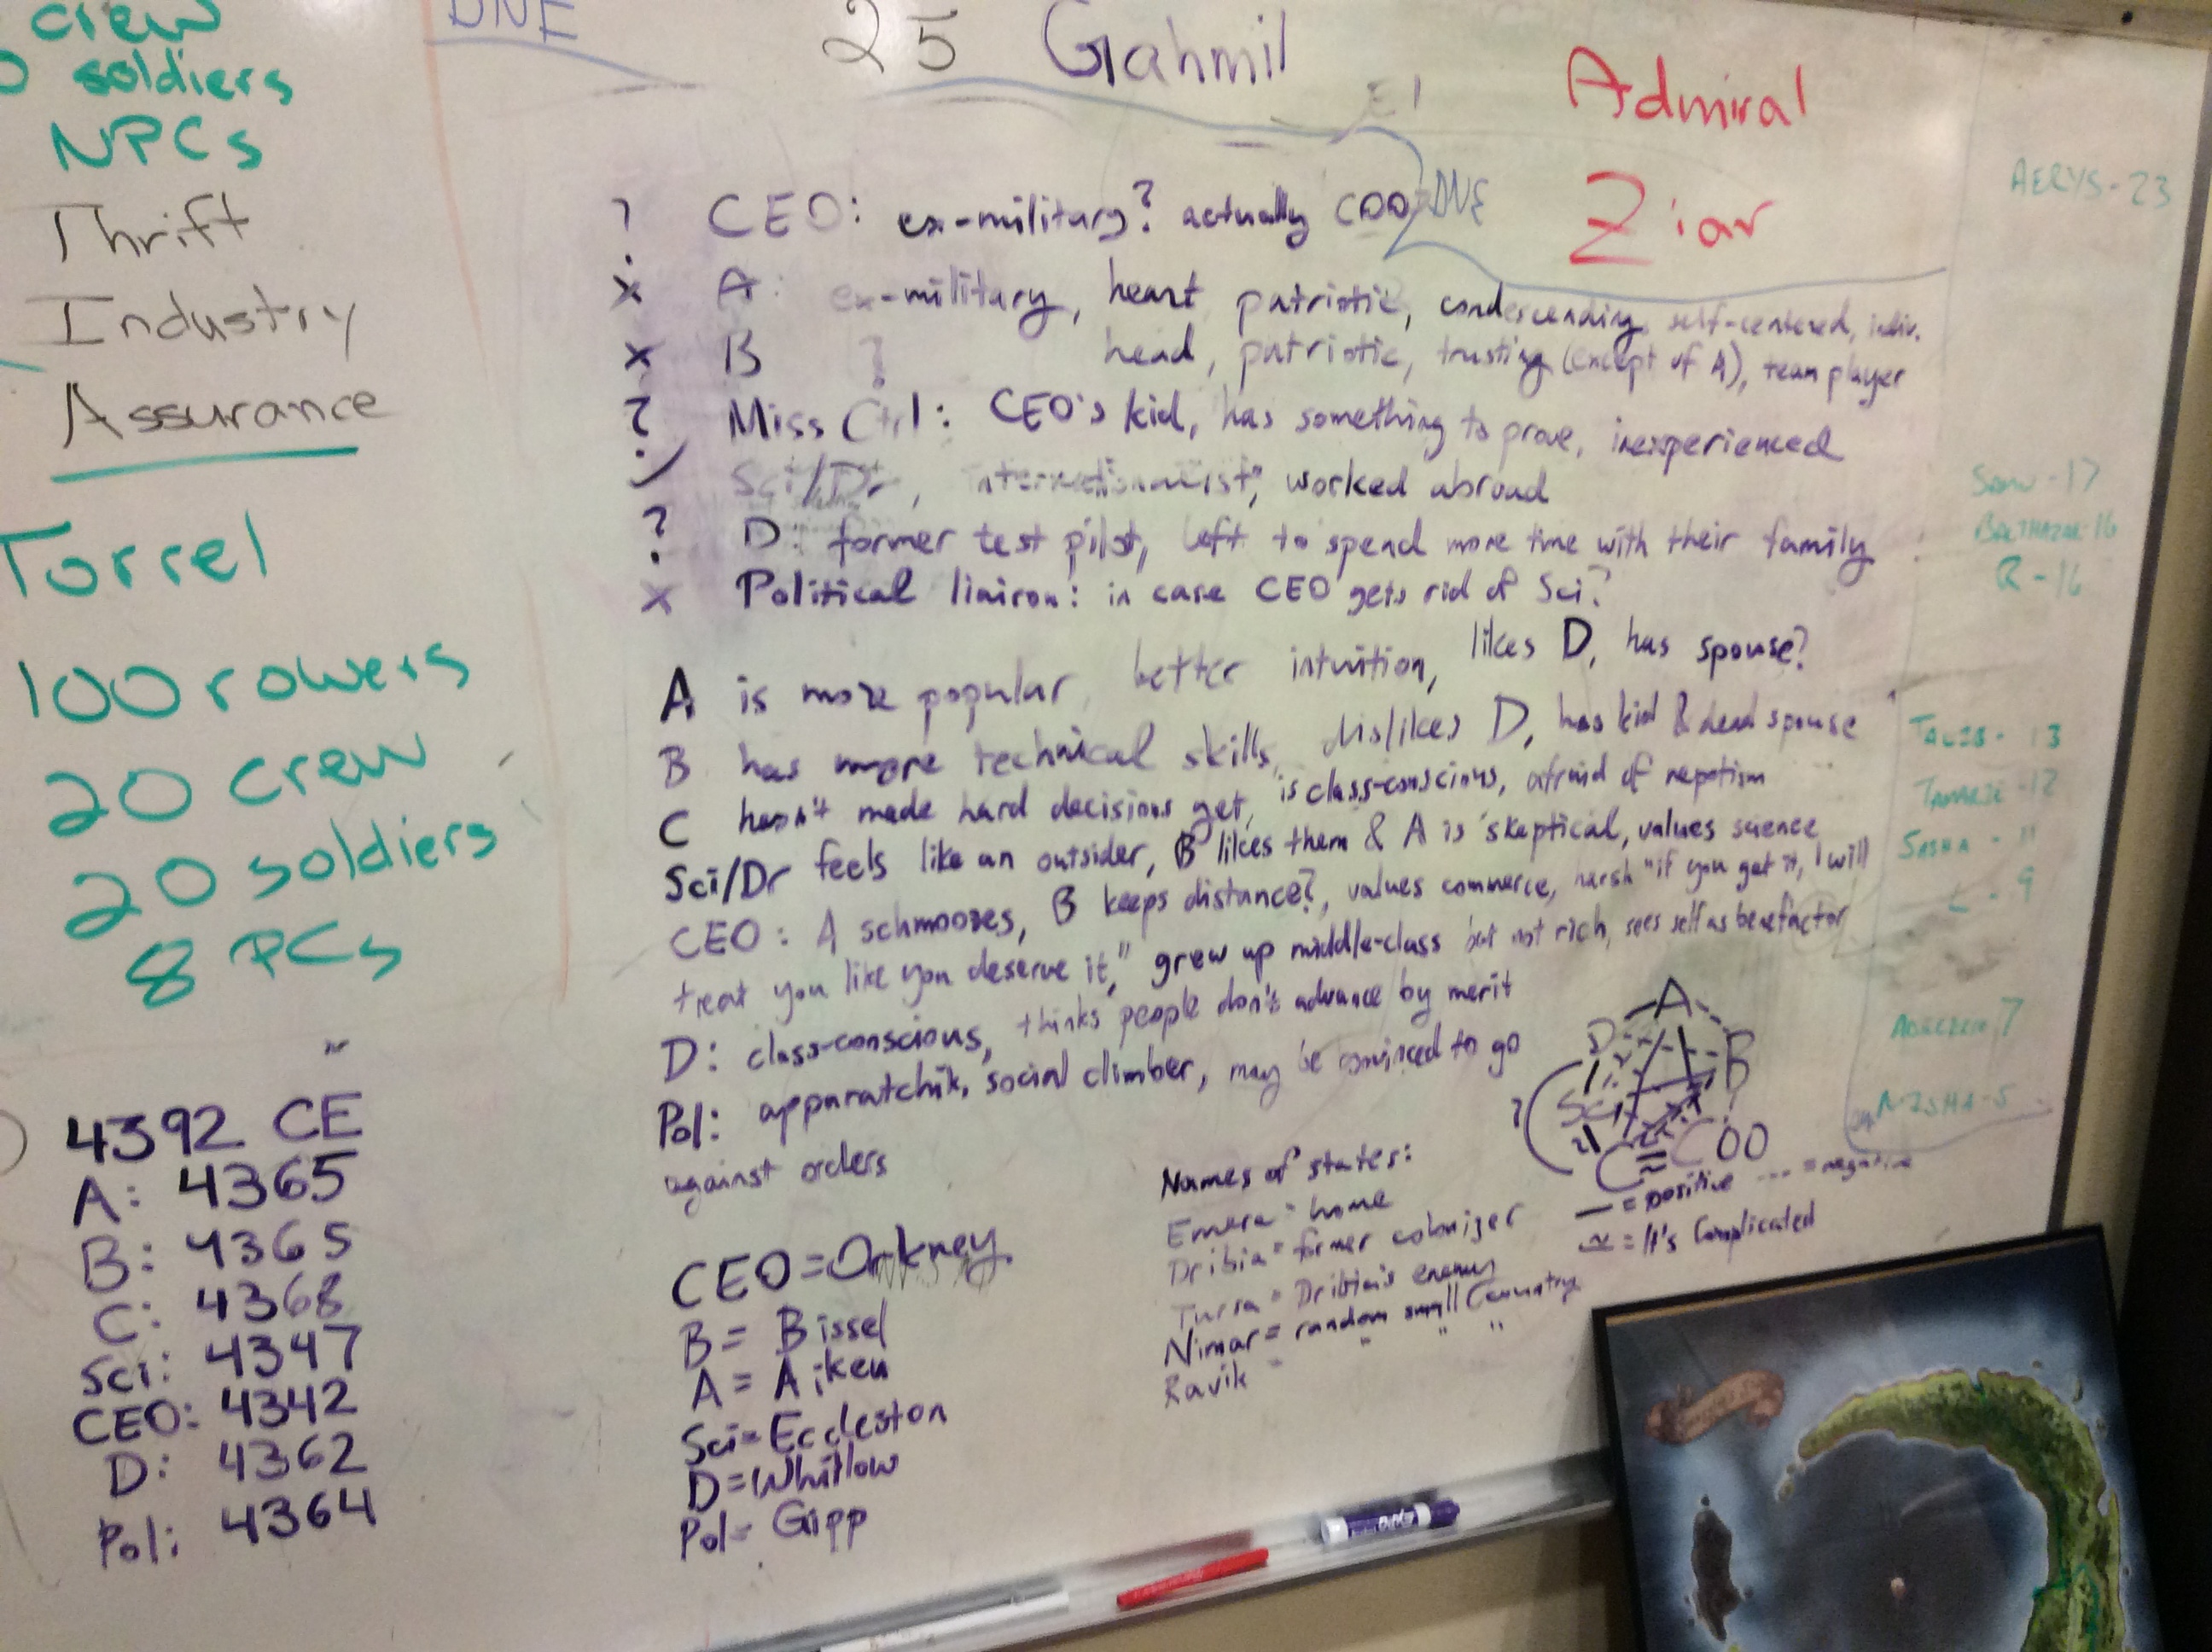 crew
soldiers
NPCs
Thrift
Industry
Assurance
Torrel
100 rowers
20 crew
20 soldiers
8 PCs
4392 CE
A: 4365
B: 4365
C: 4368
Sci: 4347
CEO: 4342
D: 4362
Pol: 4364
DNE
25 Gahmil
E1
Admiral
Ziar
DNE
? CEO: ex-military? actually COO
x A: ex-military, heart patriotic, condescending, self-centered, indiv.
x B ? head, patriotic, trusting (except of A), team player
? Miss Ctrl: CEO's kid, has something to prove, inexperienced
Sci/Dr, internationalist", worked abroad
? D: former test pilot, left to spend more time with their family
x Political liaison: in case CEO gets rid of Sci?
A is more popular, better intuition, likes D, has spouse?
B has more technical skills, dislikes D, has kid & dead spouse
C hasn't made hard decisions yet, is class-conscious, afraid of nepotism
Sci/Dr feels like an outsider, B likes them & A is skeptical, values science
CEO: A schmoozes, B keeps distance?, values commerce, harsh "if you get it, I will
treat you like you deserve it," grew up middle-class but not rich, sees self as benefactor
D: class-conscious, thinks people don't advance by merit
Pol: apparatchik, social climber, may be convinced to go
against orders
CEO = Orkney
B = Bissel
A = Aiken
Sci = Eccleston
D = Whitlow
Pol = Gipp
Names of states:
Emera = home
Dribia = former colonizer
Turra = Dribia's enemy
Nimar = random small Country
Ravik " " " "
A
D
B
Sci
C
COO
?
— = positive --- = negative
= It's Complicated
AERYS - 23
BALTHAZAR - 16
R - 16
SASHA - 11
L - 9
7
MISHA - 5